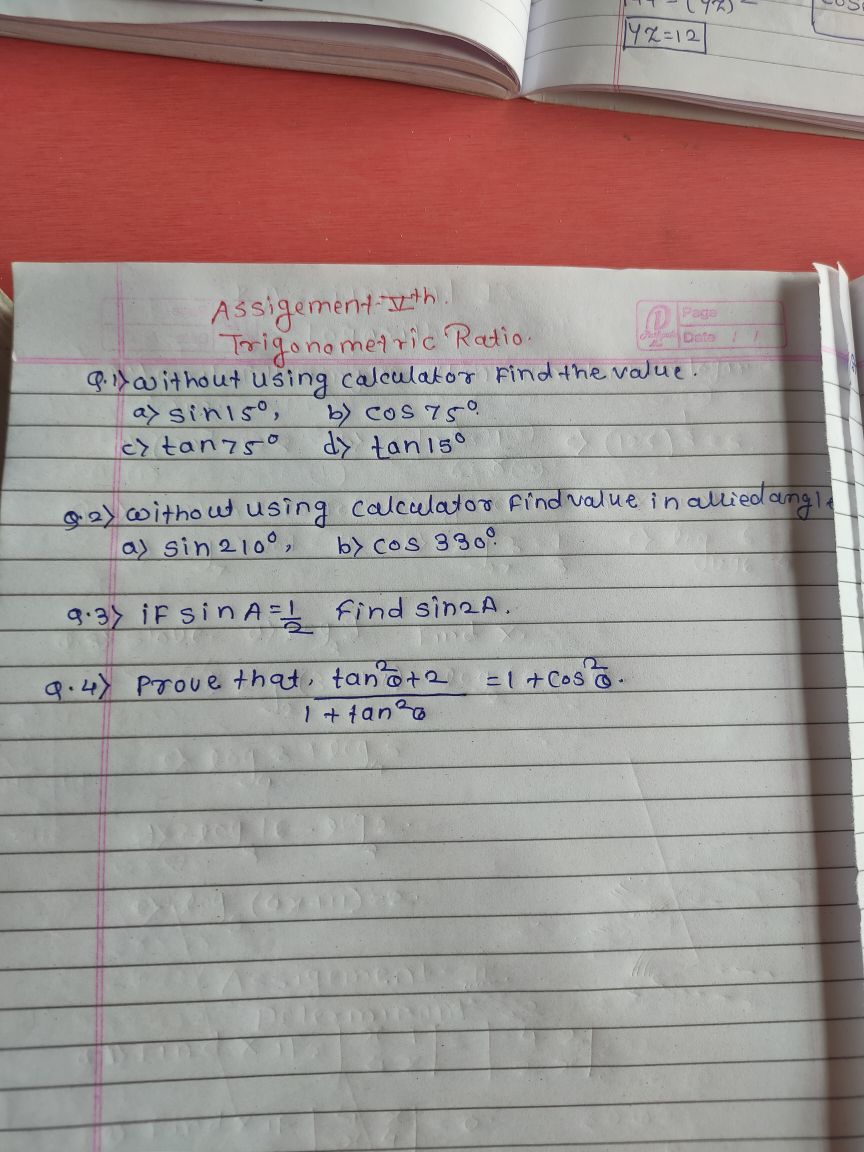 YZ=12
Assigement-Vth.
Trigonometric Ratio.
Page
Date / /
Q.1) without using calculator Find the value.
a) sin15°, b) cos 75°.
c) tan75° d) tan15°
Q.2) without using calculator find value in allied angle
a) sin 210°, b) cos 330°.
Q.3) if sin A = 1/2 find sin2A.
Q.4) Prove that, tan²θ+2 / 1 + tan²θ = 1 + cos²θ.